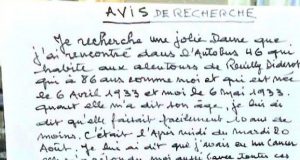 AVIS DE RECHERCHE
Je recherche une jolie Dame que
j'ai rencontré dans l'Autobus 46 qui
habite aux alentours de Reuilly Diderot
qui a 86 ans comme moi et qui est née
le 6 Avril 1933 et moi le 6 mai 1933.
quant elle m'a dit son âge, je lui ai
dit qu'elle faisait facilement 10 ans de
moins. C'était l'après midi du mardi 20
Août. Je lui ai dit que j'avais eu un Cancer